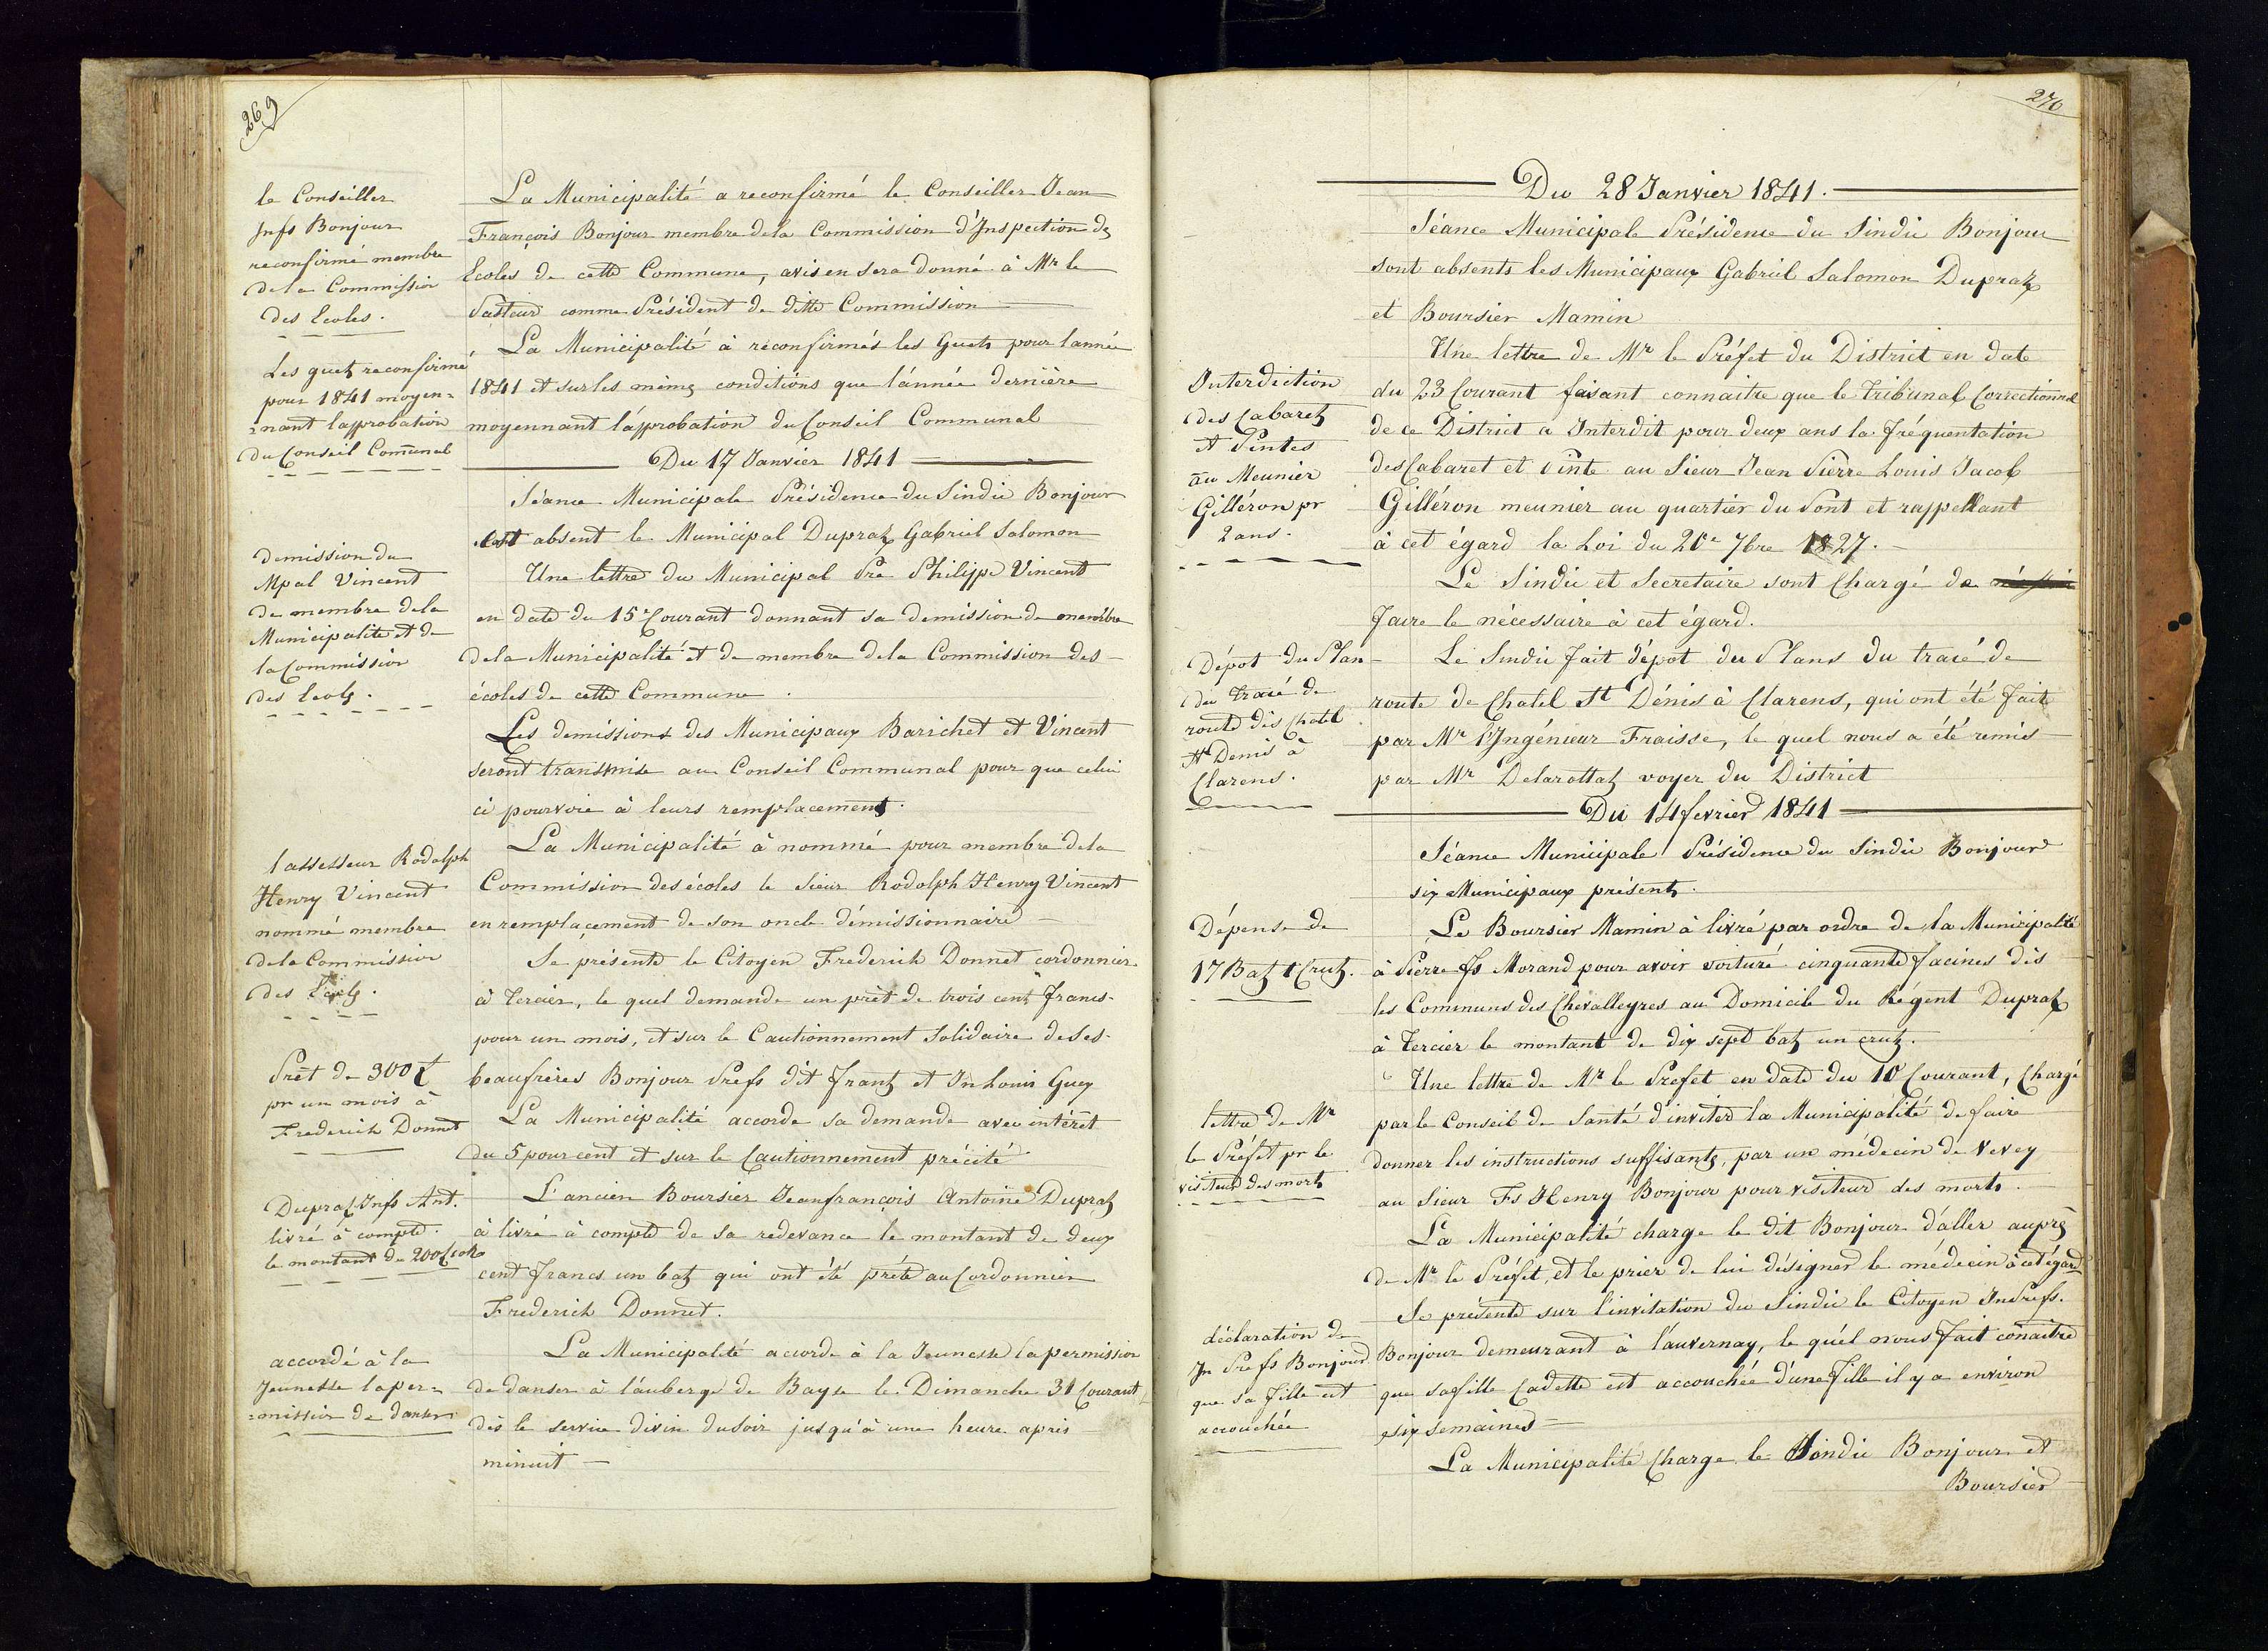 269
le Conseiller
Jnfs Bonjour
reconfirmé membre
dela Commission
des Ecoles.
La Municipalité a reconfirmé le Conseiller Jean
François Bonjour membre dela Commission d'Inspection des
Ecoles de cette Commune, avis en sera donné à Mr le
Pasteur comme Président de ditte Commission
Les guets reconfirmé
pour 1841 moyen=
=nant lapprobation
du Conseil Comunal
La Municipalité à réconfirmés les Guets pour lannée
1841 et sur les mêmes conditions que l'année dernière
moyennant l'approbation du Conseil Communal
Du 17 Janvier 1841
Séance Municipale Présidence du Sindic Bonjour
est absent le Municipal Dupraz Gabriel Salomon
demission du
Mpal Vincent
de membre dela
Municipalité et de
la Commission
des Ecoles.
Une lettre du Municipal Pre Philippe Vincent
en date du 15e Courant donnant sa demission de membre
dela Municipalité et de membre dela Commission des
écoles de cette Commune.
Les demissions des Municipaux Barichet et Vincent
seront transmise au Conseil Communal pour que celui
ci pourvoie à leurs remplacement.
lassesseur Rodolph
Henry Vincent
nommé membre
dela Commission
des Ecoles.
La Municipalité à nommé pour membre dela
Commission des écoles le Sieur Rodolph Henry Vincent
en remplaçement de son oncle démissionnaire
Se présente le Citoyen Frederich Donnet cordonnier
à Tercier, le quel demande un prêt de trois cent francs
pour un mois, et sur le Cautionnement Solidaire de ses
beaufrères Bonjour Prefs dit frantz et Jn Louis Guey
Prêt de 300
pr un mois à
Frederich Donnet
La Municipalité accorde sa demande avec intérêt
du 5 pour cent et sur le Cautionnement précité
Dupraz Jnfs Ant.
livré à compte
le montant de 200
L'ancien Boursier Jeanfrançois Antoine Dupraz
à livré à compte de sa redevance le montant de deux
cent francs un batz qui ont été prêté au Cordonnier
Frederich Donnet.
accordé à la
Jeunesse la per=
=mission de danser
La Municipalité accorde à la Jeunesse la permission
de danser à l'auberge de Bayse le Dimanche 31 Courant
dès le service divin du soir jusqu'à une heure après
minuit
270
Du 28 Janvier 1841.
Séance Municipale Présidence du Sindic Bonjour
sont absents les Municipaux Gabriel Salomon Dupraz
et Boursier Mamin
Interdiction
des Cabarets
et Pintes
au Meunier
Gilléron pr
2 ans.
Une lettre de Mr le Préfet du District en date
du 23 Courant faisant connaitre que le Tribunal Correctionnel
de ce District a Interdit pour deux ans la fréquentation
des Cabaret et Pinte au Sieur Jean Pierre Louis Jacob
Gilléron meunier au quartier du Pont et rappellant
à cet égard la Loi du 20e 7bre 1827.
Le Sindic et Secretaire sont Chargé de
faire le nécessaire à cet égard.
Dépot du Plan
du Tracé de
route dès Chatel
St Denis à
Clarens.
Le Sindic fait dépot du Plans du tracé de
route de Chatel St Dénis à Clarens, qui ont été fait
par Mr l'Ingénieur Fraisse, le quel nous a été remis
par Mr Delarottaz voyer du District
Du 14 fevrier 1841
Séance Municipale Présidence du Sindic Bonjour
six Municipaux présents.
Dépense de
17 Batz 1 Crutz.
Le Boursier Mamin à livré par ordre de la Municipalité
à Pierre fs Morand pour avoir voituré cinquante facines dès
les Communs des Chevalleyres au Domicile du Régent Dupraz
à Tercier le montant de dix sept batz un crutz.
lettre de Mr
le Préfet pr le
visiteur des morts
Une lettre de Mr le Prefet en date du 10e Courant, Chargé
par le Conseil de Santé d'inviter la Municipalité de faire
donner les instructions suffisants, par un médecin de Vevey
au Sieur Fs Henry Bonjour pour visiteur des morts.
La Municipalité charge le dit Bonjour d'aller auprès
de Mr le Préfet, et le prier de lui désigner le médecin à cet égard
déclaration de
Jn Prefs Bonjour
que sa fille est
accouchée
Se présente sur l'invitation du Sindic le Citoyen Jn Prefs.
Bonjour demeurant à l'auvernay, le quel nous fait conaitre
que sa fille Cadette est accouchée d'une fille il y a environ
six semaines
La Municipalité Charge le Sindic Bonjour et
Boursier